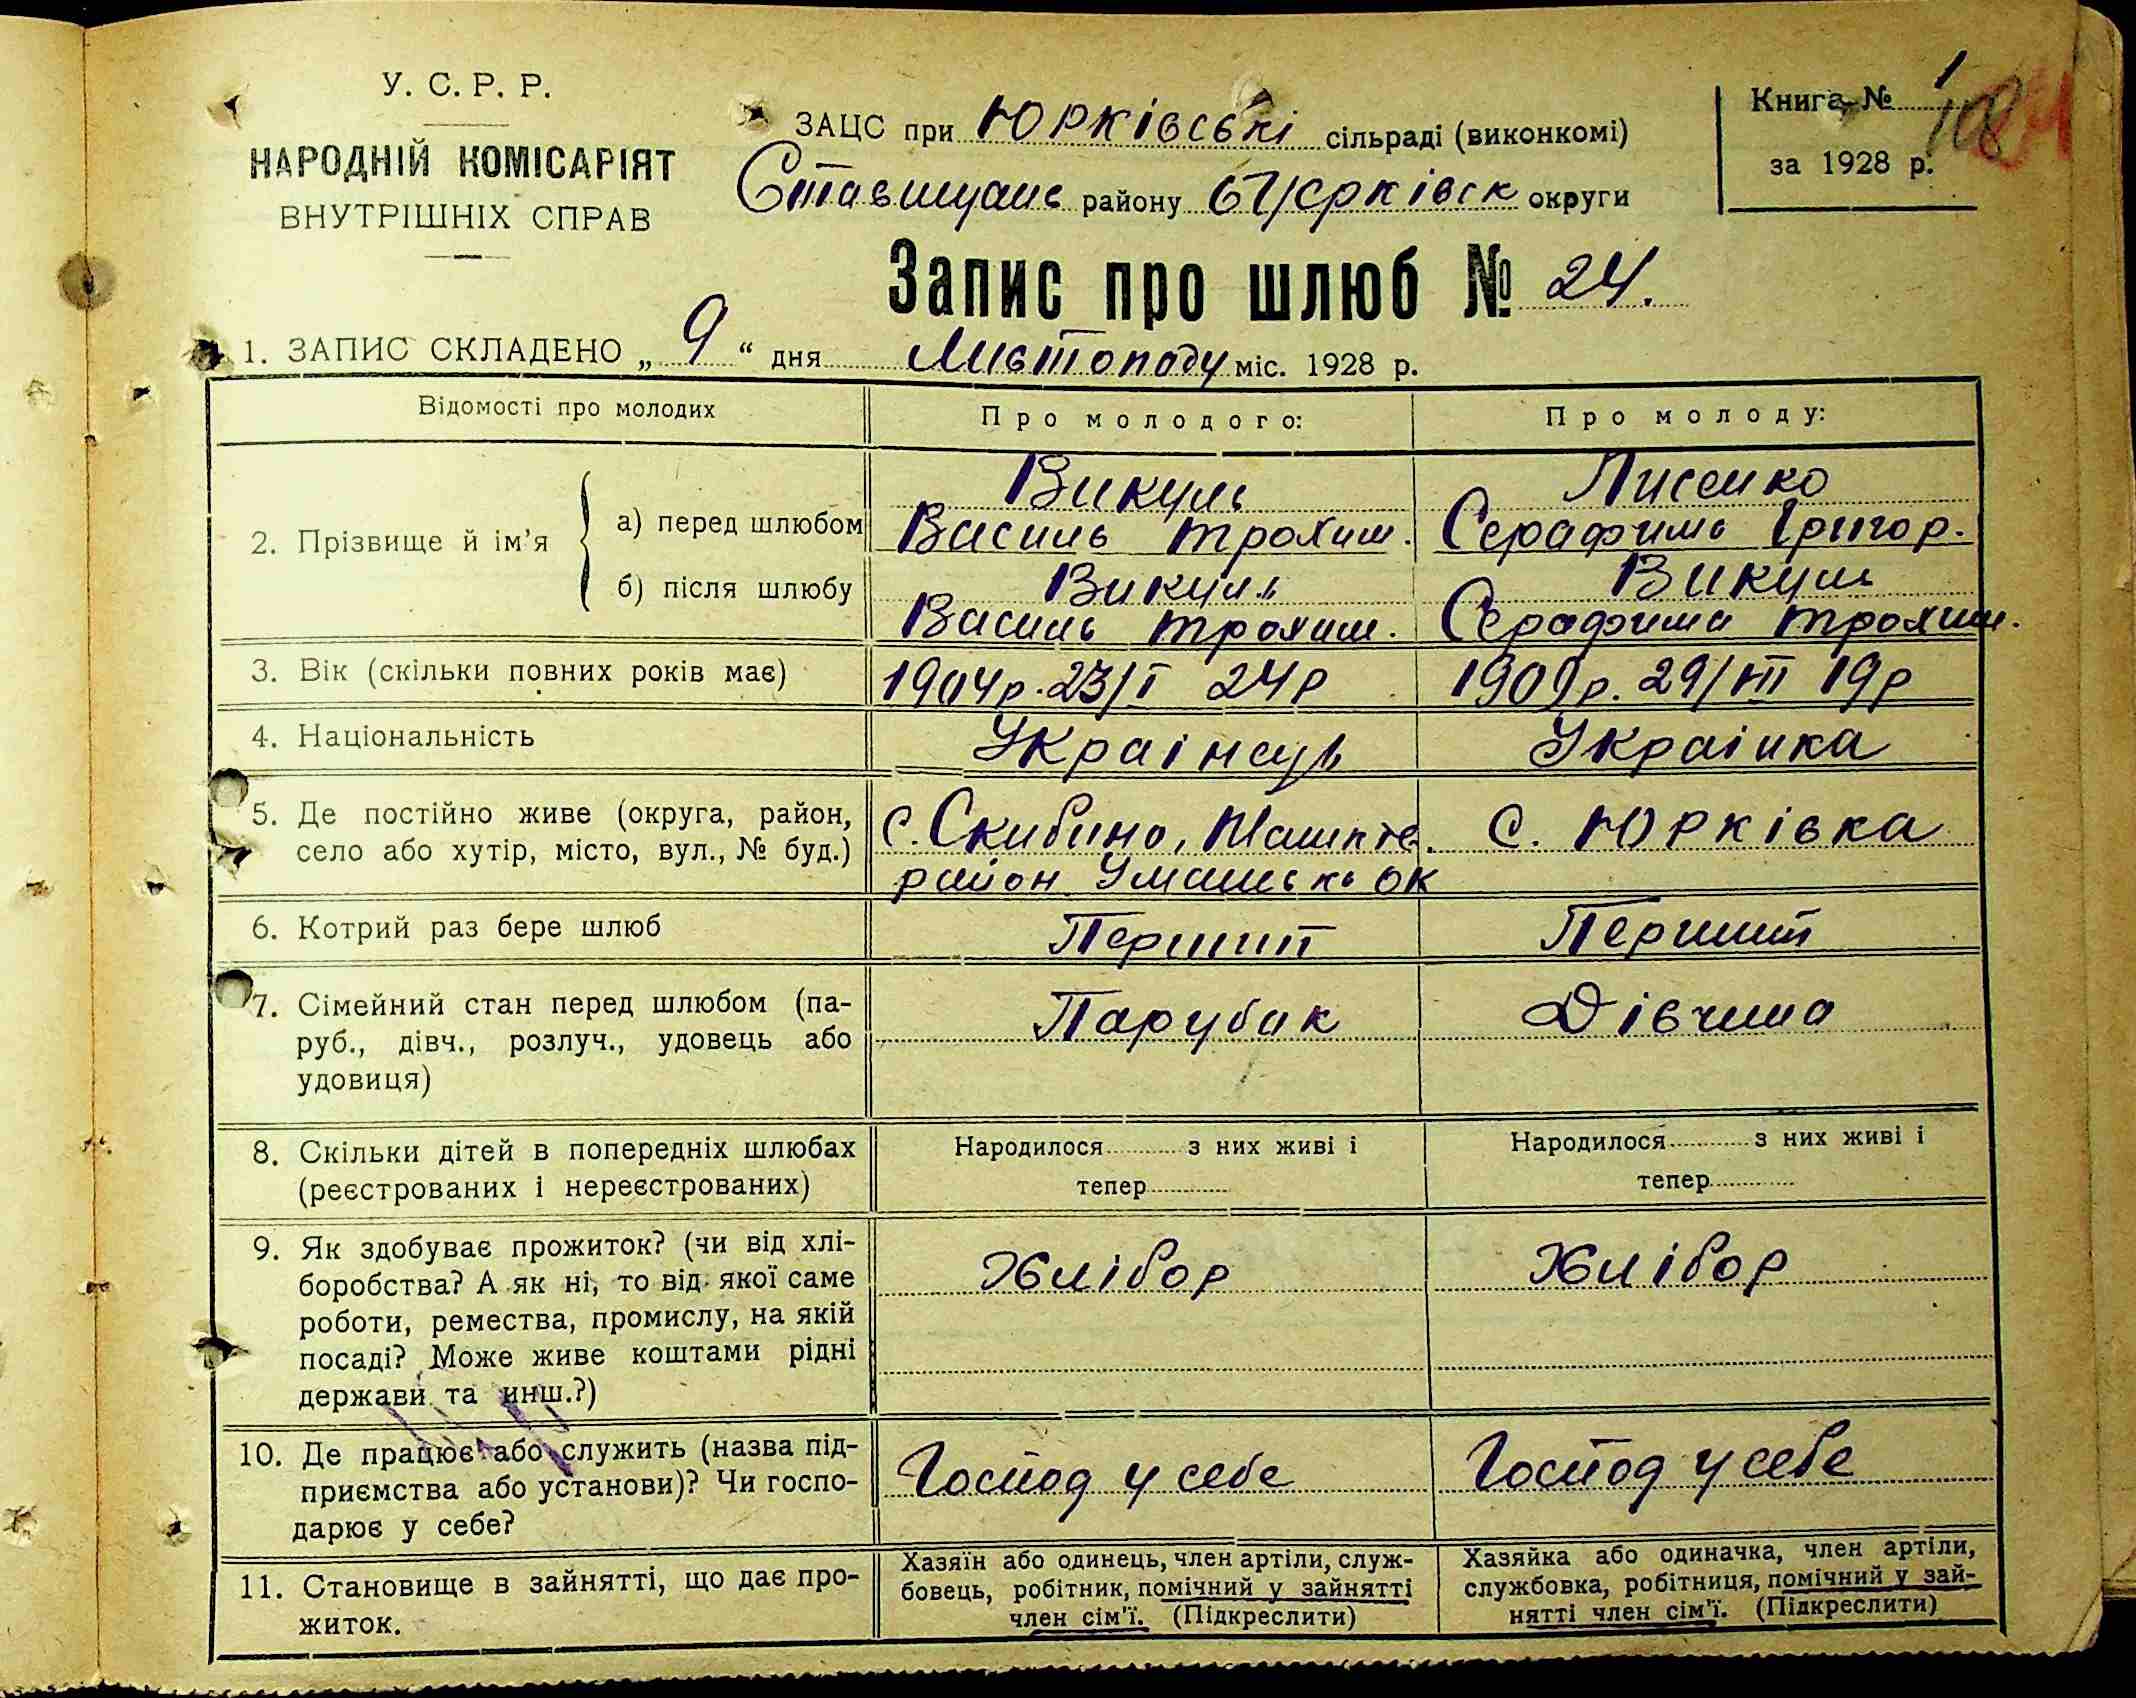 У. С. Р. Р.
НАРОДНІЙ КОМІСАРІЯТ
ВНУТРІШНІХ СПРАВ
ЗАЦС при Юрківські сільраді (виконкомі)
Ставищань району бЦерківск округи
Книга № 1
за 1928 р.
Запис про шлюб № 24.
1. ЗАПИС СКЛАДЕНО „ 9 “ дня Листопаду міс. 1928 р.
Відомості про молодих
Про молодого:
Про молоду:
2. Прізвище й ім'я
а) перед шлюбом
Викуль
Василь Трохим.
Лисенко
Серафима Григор.
б) після шлюбу
Викуль
Василь Трохим.
Викуль
Серафима Трохим.
3. Вік (скільки повних років має)
1904р. 23/I 24р
1909р. 29/VII 19р
4. Національність
Українець
Українка
5. Де постійно живе (округа, район,
село або хутір, місто, вул., № буд.)
с. Скибино,
район Уманськ ок
с. Юрківка
6. Котрий раз бере шлюб
Перший
Перший
7. Сімейний стан перед шлюбом (па-
руб., дівч., розлуч., удовець або
удовиця)
Парубак
Дівчина
8. Скільки дітей в попередніх шлюбах
(реєстрованих і нереєстрованих)
Народилося з них живі і
тепер
Народилося з них живі і
тепер
9. Як здобуває прожиток? (чи від хлі-
боробства? А як ні, то від якої саме
роботи, ремества, промислу, на якій
посаді? Може живе коштами рідні
держави та инш.?)
Хлібор
Хлібор
10. Де працює або служить (назва під-
приємства або установи)? Чи госпо-
дарює у себе?
Господ у себе
Господ у себе
11. Становище в зайнятті, що дає про-
житок.
Хазяїн або одинець, член артіли, служ-
бовець, робітник, помічний у зайнятті
член сім'ї. (Підкреслити)
Хазяйка або одиначка, член артіли,
службовка, робітниця, помічний у зай-
нятті член сім'ї. (Підкреслити)